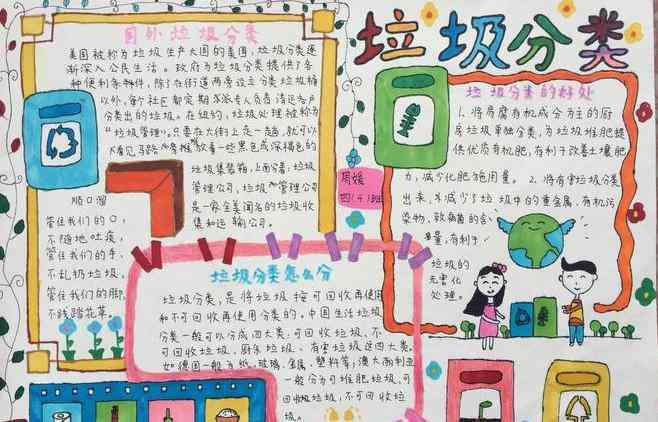 国外垃圾分类
美国被称为垃圾生产大国的美国,垃圾分类逐
渐深入公民生活。政府为垃圾分类提供了各
种便利条件,除了在街道两旁设立分类垃圾桶
以外,每个社区都定期派专人负责清运各户
分类出的垃圾。在纽约,垃圾处理被称为
"垃圾管理"。只要在大街上走一走,就可以
看见马路旁堆放着一些黑色或深褐色的
垃圾集装箱,上面分着:垃圾
管理公司,垃圾管理公司
是一家全美闻名的垃圾收
集和运输公司。
顺口溜
管住我们的口,
不随地吐痰,
管住我们的手,
不乱扔垃圾,
管住我们的脚,
不践踏花草。
垃圾分类怎么分
垃圾分类,是将垃圾按可回收再使用
和不可回收再使用分类的。中国生活垃圾
分类一般可以分成四大类:可回收垃圾、不
可回收垃圾、厨余垃圾、有害垃圾这四大类。
如德国一般为纸、玻璃、金属、塑料等;澳大利亚
一般分为可堆肥垃圾,可
回收垃圾,不可回收垃
圾。
垃圾分类
周媛
四(4)班
垃圾分类的好处
1、将易腐有机成分为主的厨
房垃圾单独分类,为垃圾堆肥提
供优质有机肥,有利于改善土壤肥
力,减少化肥施用量。2、将有害垃圾分类
出来,减少了垃圾中的重金属,有机污
染物、致病菌的含
量,有利于
垃圾的
无害化
处理。